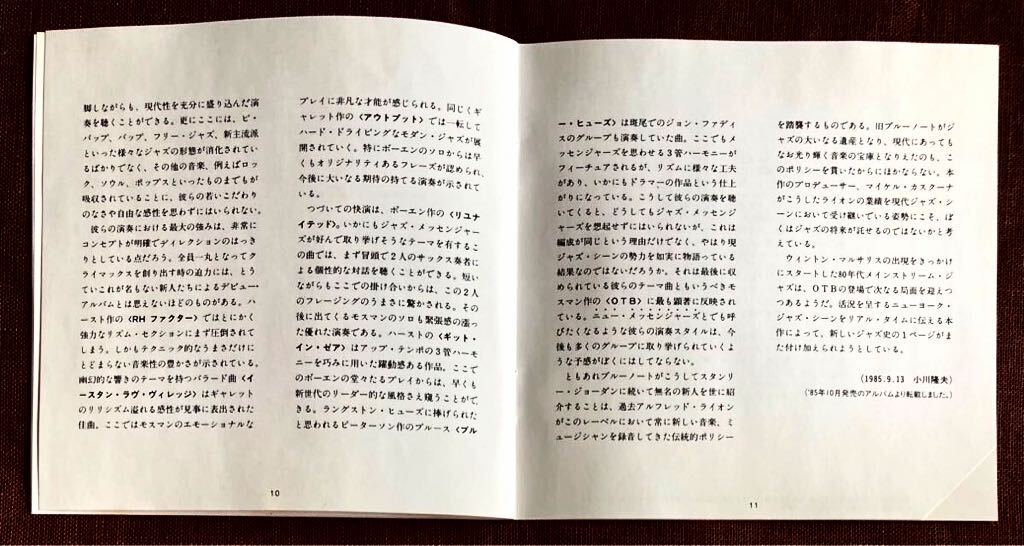 脚しながらも、現代性を充分に盛り込んだ演
奏を聴くことができる。更にここには、ビ・
バップ、バップ、フリー・ジャズ、新主流派
といった様々なジャズの形態が消化されてい
るばかりでなく、その他の音楽、例えばロッ
ク、ソウル、ポップスといったものまでもが
吸収されていることに、彼らの若いこだわり
のなさや自由な感性を思わずにはいられない。
　彼らの演奏における最大の強みは、非常に
コンセプトが明確でディレクションのはっき
りとしている点だろう。全員一丸となってク
ライマックスを創り出す時の迫力には、とう
ていこれが名もない新人たちによるデビュー・
アルバムとは思えないほどのものがある。ハ
ースト作の〈RH ファクター〉ではとにかく
強力なリズム・セクションにまず圧倒されて
しまう。しかもテクニック的なうまさだけに
とどまらない音楽性の豊かさが示されている。
幽幻的な響きのテーマを持つバラード曲〈イ
ースタン・ラヴ・ヴィレッジ〉はギャレット
のリリシズム溢れる感性が見事に表出された
佳曲。ここではモスマンのエモーショナルな
プレイに非凡な才能が感じられる。同じくギ
ャレット作の〈アウトプット〉では一転して
ハード・ドライビングなモダン・ジャズが展
開されていく。特にボーエンのソロからは早
くもオリジナリティあるフレーズが認められ、
今後に大いなる期待の持てる演奏が示されて
いる。
　つづいての快演は、ボーエン作の〈リユナ
イテッド〉。いかにもジャズ・メッセンジャー
ズが好んで取り挙げそうなテーマを有するこ
の曲では、まず冒頭で2人のサックス奏者に
よる個性的な対話を聴くことができる。短い
ながらもここでの掛け合いからは、この2人
のフレージングのうまさに驚かされる。その
後に出てくるモスマンのソロも緊張感の漲っ
た優れた演奏である。ハーストの〈ギット・
イン・ゼア〉はアップ・テンポの3管ハーモ
ニーを巧みに用いた躍動感ある作品。ここで
のボーエンの堂々たるプレイからは、早くも
新世代のリーダー的な風格さえ窺うことがで
きる。ラングストン・ヒューズに捧げられた
と思われるピーターソン作のブルース〈ブル
10
ー・ヒューズ〉は斑尾でのジョン・ファディ
スのグループも演奏していた曲。ここでもメ
ッセンジャーズを思わせる3管ハーモニーが
フィーチュアされるが、リズムに様々な工夫
があり、いかにもドラマーの作品という仕上
がりになっている。こうして彼らの演奏を聴
いていくと、どうしてもジャズ・メッセンジ
ャーズを想起せずにはいられないが、これは
編成が同じという理由だけでなく、やはり現
ジャズ・シーンの勢力を如実に物語っている
結果なのではないだろうか。それは最後に収
められている彼らのテーマ曲ともいうべきモ
スマン作の〈OTB〉に最も顕著に反映され
ている。ニュー・メッセンジャーズとでも呼
びたくなるような彼らの演奏スタイルは、今
後も多くのグループに取り挙げられていくよ
うな予感がぼくにはしてならない。
　ともあれブルーノートがこうしてスタンリ
ー・ジョーダンに続いて無名の新人を世に紹
介することは、過去アルフレッド・ライオン
がこのレーベルにおいて常に新しい音楽、ミ
ュージシャンを録音してきた伝統的ポリシー
を踏襲するものである。旧ブルーノートが
ジャズの大いなる遺産となり、現代にあっても
なお光り輝く音楽の宝庫となりえたのも、こ
のポリシーを貫いたからにほかならない。本
作のプロデューサー、マイケル・カスクーナ
がこうしたライオンの業績を現代ジャズ・シ
ーンにおいて受け継いでいる姿勢にこそ、ぼ
くはジャズの将来が託せるのではないかと考
えている。
　ウィントン・マルサリスの出現をきっかけ
にスタートした80年代メインストリーム・ジ
ャズは、OTBの登場で次なる局面を迎えつ
つあるようだ。活況を呈するニューヨーク・
ジャズ・シーンをリアル・タイムに伝える本
作によって、新しいジャズ史の1ページがま
た付け加えられようとしている。
(1985.9.13　小川隆夫)
('85年10月発売のアルバムより転載しました。)
11